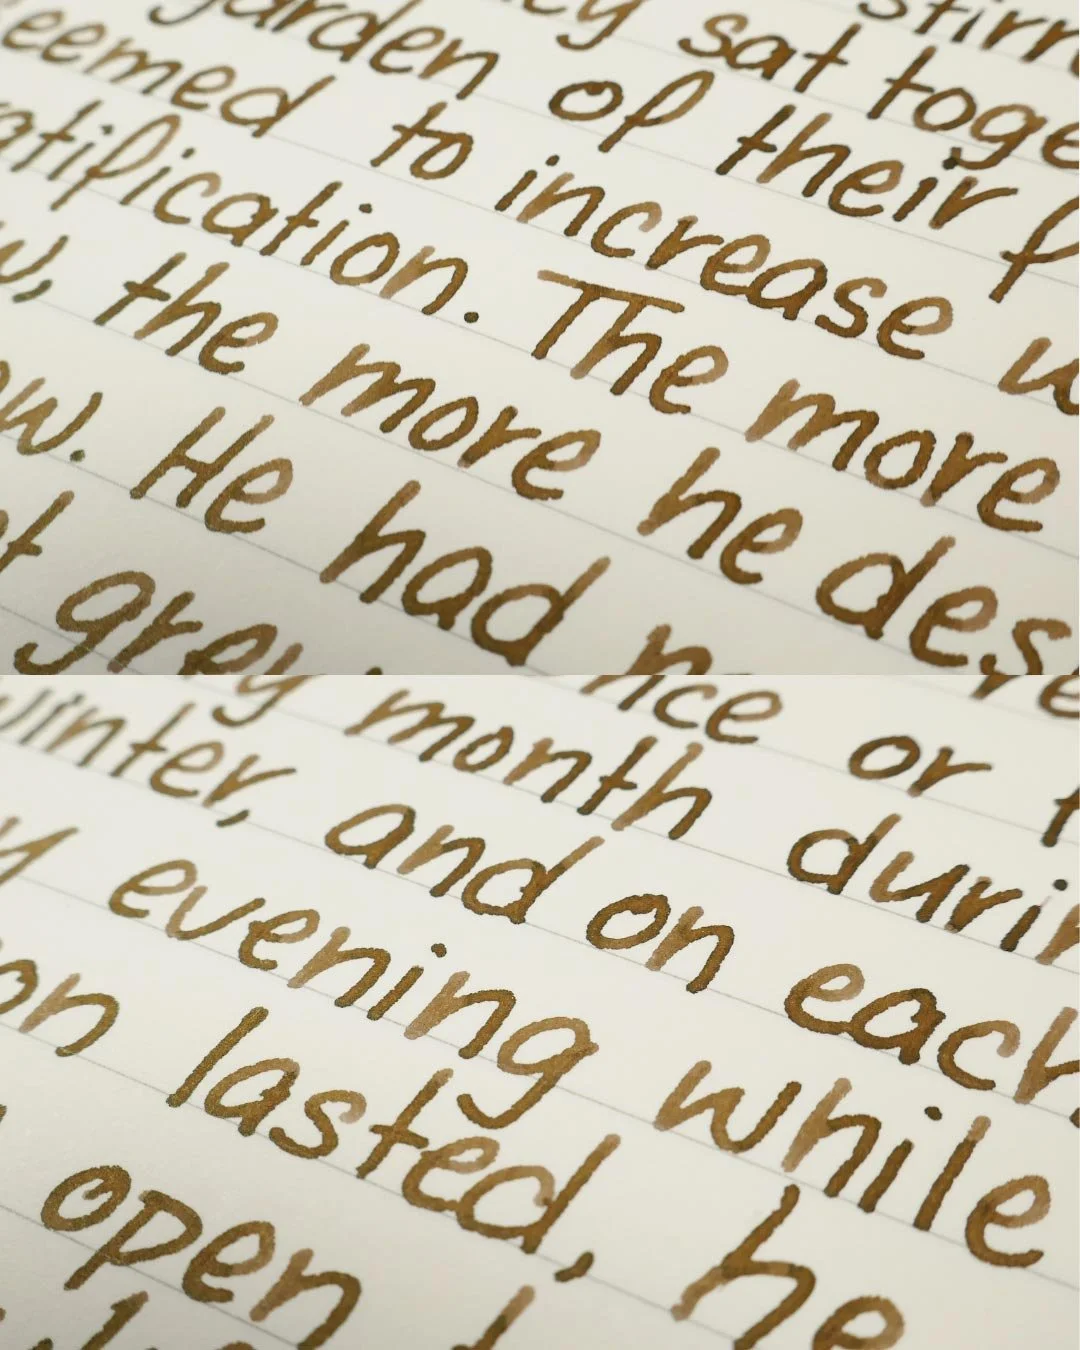 stirr
ey sat toge
garden of their f
eemed to increase w
ratification. The more
w, the more he des
ow. He had
at grew
nce or t
y month durin
winter, and on each
y evening while
on lasted, he
open